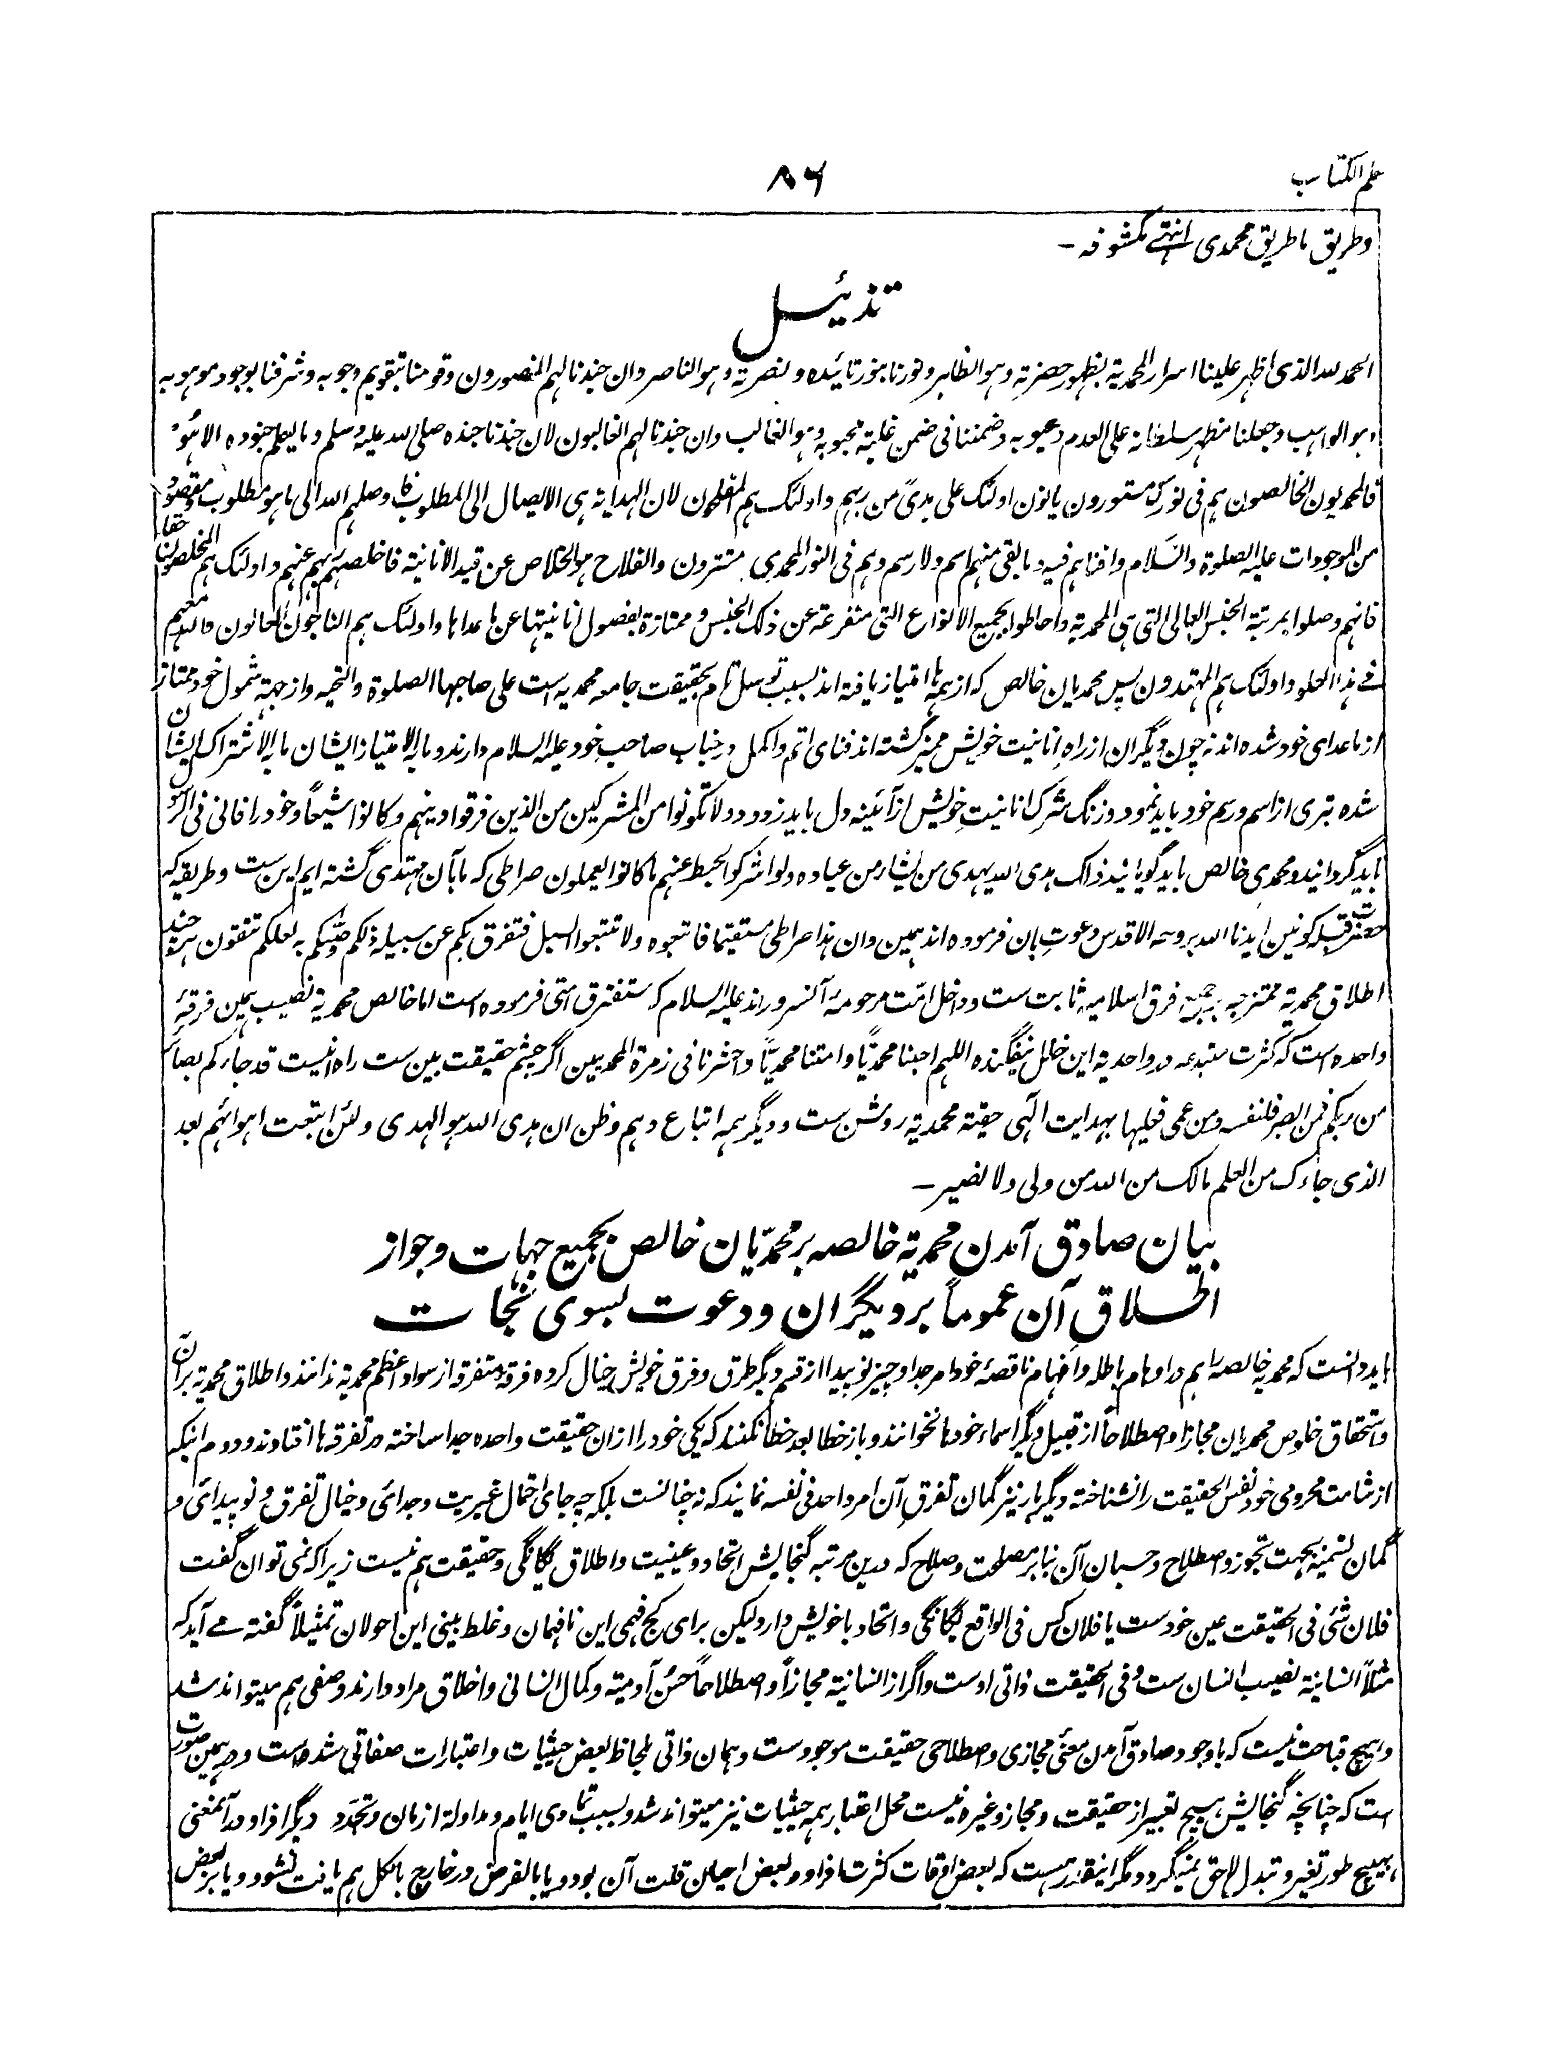 علم الکتاب
۸۶
وطریق ما طریق محمدی انتہی مکشوفہ ـ
تذئیل
الحمد للہ الذی اظہر علینا اسرار المحمدیۃ بظہور حضرتہ وہو الظاہر ونورنا بنور تائیدہ ونصرتہ وہو الناصر وان جندنا لہم المنصورون وقومنا بتقویم وجوبہ وشرفنا بوجود موہوبہ
وہو الواہب وجعلنا مظہر سلطانہ علی العدم وعیوبہ وضمننا فی ضمن غلبۃ محبوبہ وہو الغالب وان جندنا لہم الغالبون لان جندنا جندہ صلی اللہ علیہ وسلم وما یعلم جنودہ الا ہو
فالمحمدیون الخالصون ہم فی نورہ مستورون یانون اولئک علی ہدیً من ربہم واولئک ہم المفلحون لان الہدایۃ ہی الایصال الی المطلوب وصلہم اللہ الی ما ہو مطلوب ومقصود
من الموجودات علیہ الصلوۃ والسلام وافناہم فیہ وما بقی منہم اسم ولا رسم وہم فی النور المحمدی مستترون والفلاح ہو الخلاص عن قید الانانیۃ فاخلصہم ربہم عنہم واولئک ہم المخلصون حقا
فانہم وصلوا بمرتبۃ الجنس العالی التی ہی المحمدیۃ واحاطوا بجمیع الانواع التی متفرعۃ عن ذلک الجنس وممتازۃ بفصول انانیتہا عن ما عداہا واولئک ہم الناجون العالون واللہ معہم
فی ہذا العلو واولئک ہم المہتدون پس محمدیان خالص کہ از ہمہ ہا امتیاز یافتہ اند بسبب توسل تام بحقیقت جامعہ محمدیہ است علی صاحبہا الصلوۃ والتحیۃ واز جہۃ شمول خود ممتاز
از ماعدای خود شدہ اند نہ چون دیگران از راہ انانیت خویش ممیز گشتہ اند فنای اتم واکمل در جناب صاحب خود علیہ السلام دارند وما بہ الامتیاز ایشان ما بہ الاشتراک ایشان
شدہ تبری از اسم ورسم خود باید نمود وزنگ شرک انانیت خویش از آئینہ دل باید زدود ولا تکونوا من المشرکین من الذین فرقوا دینہم وکانوا شیعاً وخود را فانی فی الرسول
باید گردانید ومحمدی خالص باید گویانید ذلک ہدی اللہ یہدی من یشاء من عبادہ ولو اشرکوا لحبط عنہم ما کانوا یعملون صراطی کہ ما بآن مہتدی گشتہ ایم این ست وطریقیکہ
حضرت قبلہ کونین ایدنا اللہ بروحہ الاقدس دعوت بان فرمودہ اند ہمین وان ہذا صراطی مستقیما فاتبعوہ ولا تتبعوا السبل فتفرق بکم عن سبیلہ ذلکم وصٰکم بہ لعلکم تتقون ہر چند
اطلاق محمدیۃ ممتزجہ بر جمیع فرق اسلامیہ ثابت ست وداخل امت مرحومۂ آنسرور اند علیہ السلام کہ ستفترق امتی فرمودہ است اما خالص محمدیۃ نصیب ہمین فرقۂ
واحدہ است کہ کثرت مبتدعہ در واحدیۃ این خلل نیفگندہ اللہم احینا محمدیًّا وامتنا محمدیًّا واحشرنا فی زمرۃ المحمدیین اگر چشم حقیقت بین ست راہ اینست قد جاءکم بصائر
من ربکم فمن ابصر فلنفسہ ومن عمی فعلیہا بہدایت الٰہی حقیۃ محمدیۃ روشن ست ودیگر ہمہ اتباع وہم وظن ان ہدی اللہ ہو الہدی ولئن اتبعت اہوائہم بعد
الذی جاءک من العلم مالک من اللہ من ولی ولا نصیر ـ
بیان صادق آمدن محمدیۃ خالصہ بر محمدیّان خالص بجمیع جہات وجواز
اطلاق آن عموماً بر دیگران ودعوت بسوی نجات
باید دانست کہ محمدیۃ خالصہ را ہم در اوہام باطلہ وافہام ناقصۂ خود امر جدا وچیز نوپیدا از قسم دیگر طرق وفرق خویش خیال کردہ فرقہ متفرقہ از سواد اعظم محمدیۃ ندانند واطلاق محمدیۃ بر آن
واستحقاق خلوص محمدیان مجازا واصطلاحاً از قبیل دیگر اسماء خودہا نخوانند وباز خطا بعد خطا نکنند کہ یکی خود را ازان حقیقت واحدہ جدا ساختہ در تفرقہ ہا افتادند ودوم اینکہ
از شامت محرومی خود نفس الحقیقت را نشناختہ دیگر بار نیز گمان تفرق آن امر واحد فی نفسہ نمایند کہ نہ چنانست بلکہ چہ جای احتمال غیریت وجدائی وخیال تفرق ونوپیدائی و
گمان تسمیہ بجہت تجوز واصطلاح وحسبان آن بنابر مصلحت وصلاح کہ درین مرتبہ گنجایش اتحاد وعینیت واطلاق یگانگی وحقیقت ہم نیست زیراکہ نمی توان گفت
فلان شئی فی الحقیقت عین خودست یا فلان کس فی الواقع یگانگی واتحاد با خویش دارد لیکن برای کج فہمی این نافہمان وغلط بینی این احولان تمثیلاً گفتہ مے آید کہ
مثلاً انسانیۃ نصیب انسان ست وفی الحقیقت ذاتی اوست واگر از انسانیۃ مجازاً واصطلاحاً حسن آدمیۃ وکمال انسانی واخلاق مراد دارند وصفی ہم میتواند شد
وہیچ قباحت نیست کہ باوجود صادق آمدن معنی مجازی واصطلاحی حقیقت موجودست وہمان ذاتی بلحاظ بعض حیثیات واعتبارات صفاتی شدہ است ودر ہمین صورت
است کہ چنانچہ گنجایش ہیچ تعبیر از حقیقت ومجاز وغیرہ نیست محل اعتبار ہمہ حیثیات نیز میتواند شد وبسبب تمادی ایام ومداولۃ ازمان وتجدد دیگر افراد در آنمعنی
بہیچ طور تغیر وتبدل لاحق نمیگردد مگر اینقدر ہست کہ بعض اوقات کثرت افراد وبعض احیان قلت آن بود ویا بالفرض در خارج بالکل ہم یافت نشود ویا بر بعض